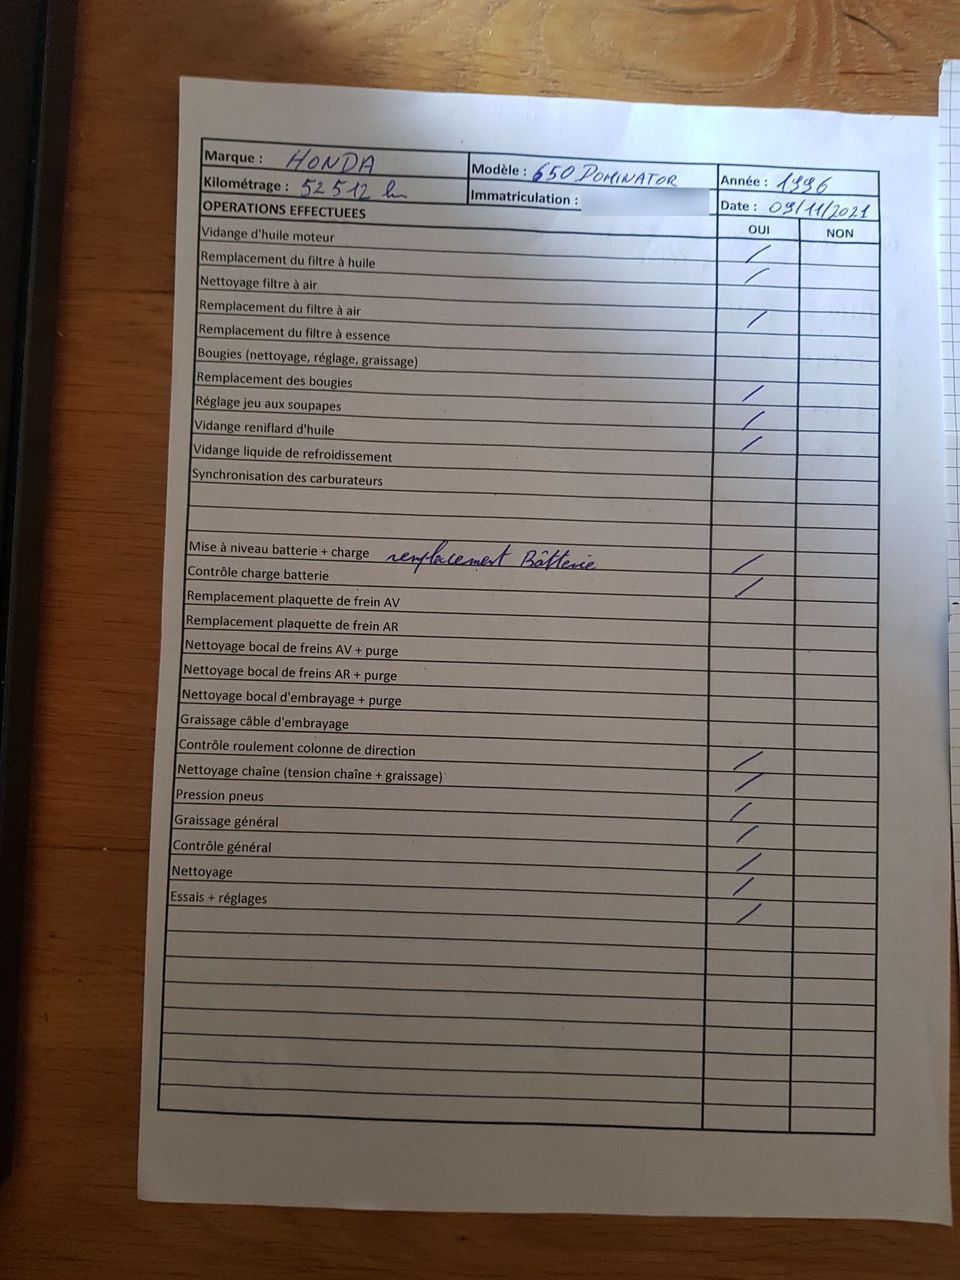 Marque : HONDA Modèle : 650 DOMINATOR Année : 1996
Kilométrage : 52 512 km Immatriculation : Date : 09/11/2021
OPERATIONS EFFECTUEES OUI NON
Vidange d'huile moteur /
Remplacement du filtre à huile /
Nettoyage filtre à air
Remplacement du filtre à air /
Remplacement du filtre à essence
Bougies (nettoyage, réglage, graissage)
Remplacement des bougies /
Réglage jeu aux soupapes /
Vidange reniflard d'huile /
Vidange liquide de refroidissement
Synchronisation des carburateurs
Mise à niveau batterie + charge remplacement Bâtterie /
Contrôle charge batterie /
Remplacement plaquette de frein AV
Remplacement plaquette de frein AR
Nettoyage bocal de freins AV + purge
Nettoyage bocal de freins AR + purge
Nettoyage bocal d'embrayage + purge
Graissage câble d'embrayage
Contrôle roulement colonne de direction /
Nettoyage chaîne (tension chaîne + graissage) /
Pression pneus /
Graissage général /
Contrôle général /
Nettoyage /
Essais + réglages /